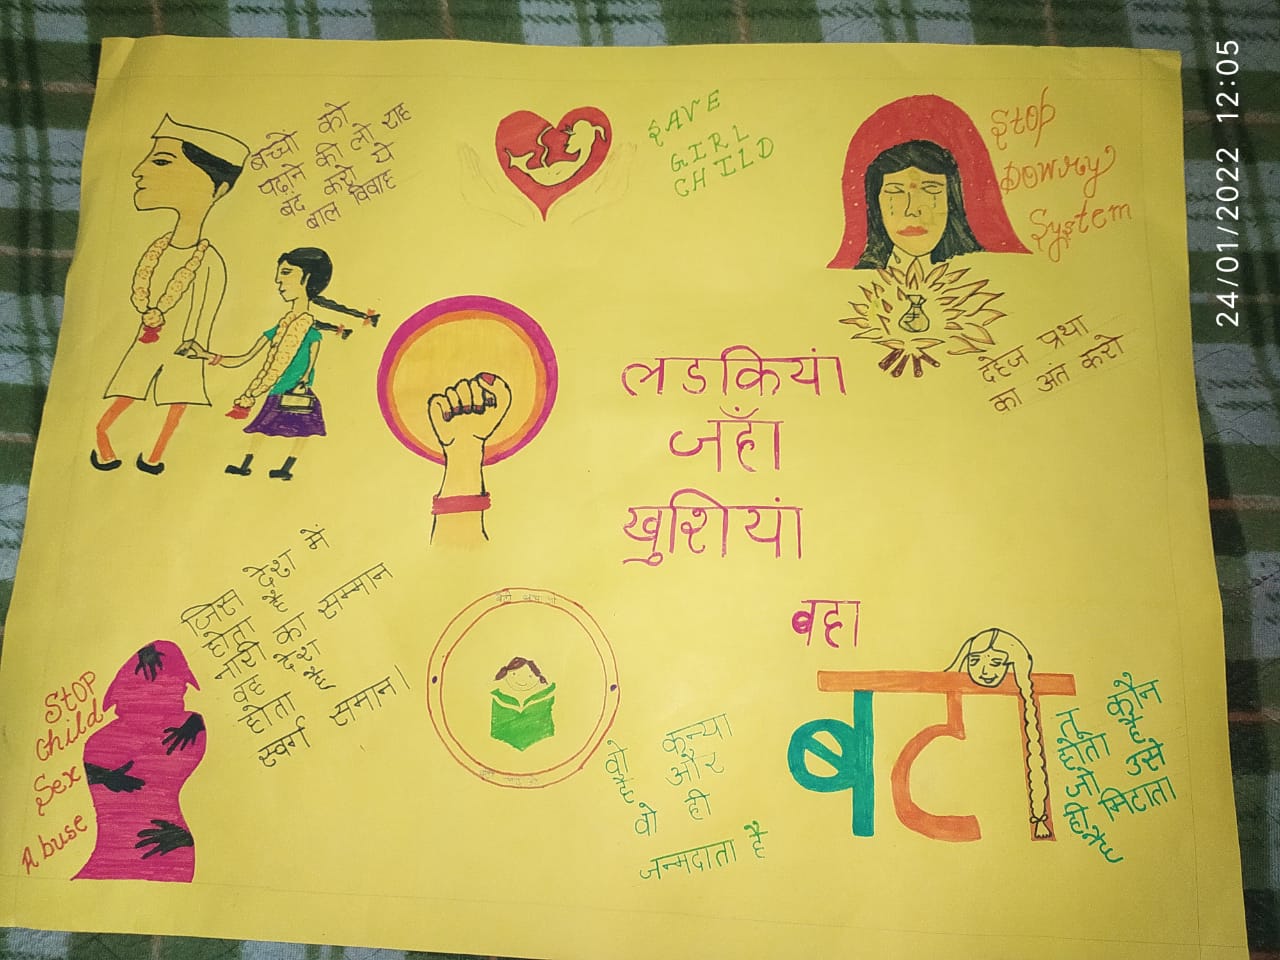 बच्चो को
पढ़ाने की लो राह
बंद करो ये
बाल विवाह
SAVE
GIRL
CHILD
Stop
Dowry
System
दहेज प्रथा
का अंत करो
लडकियां
जहाँ
खुशियां
बहा
जिस देश में
होता है
नारी का सम्मान
वह देश
होता है
स्वर्ग समान।
Stop
Child
Sex
Abuse
वो कन्या
है और
वो ही
जन्मदाता है
बटा
तू कौन
होता है
जो उसे
ही मिटाता
है
24/01/2022 12:05